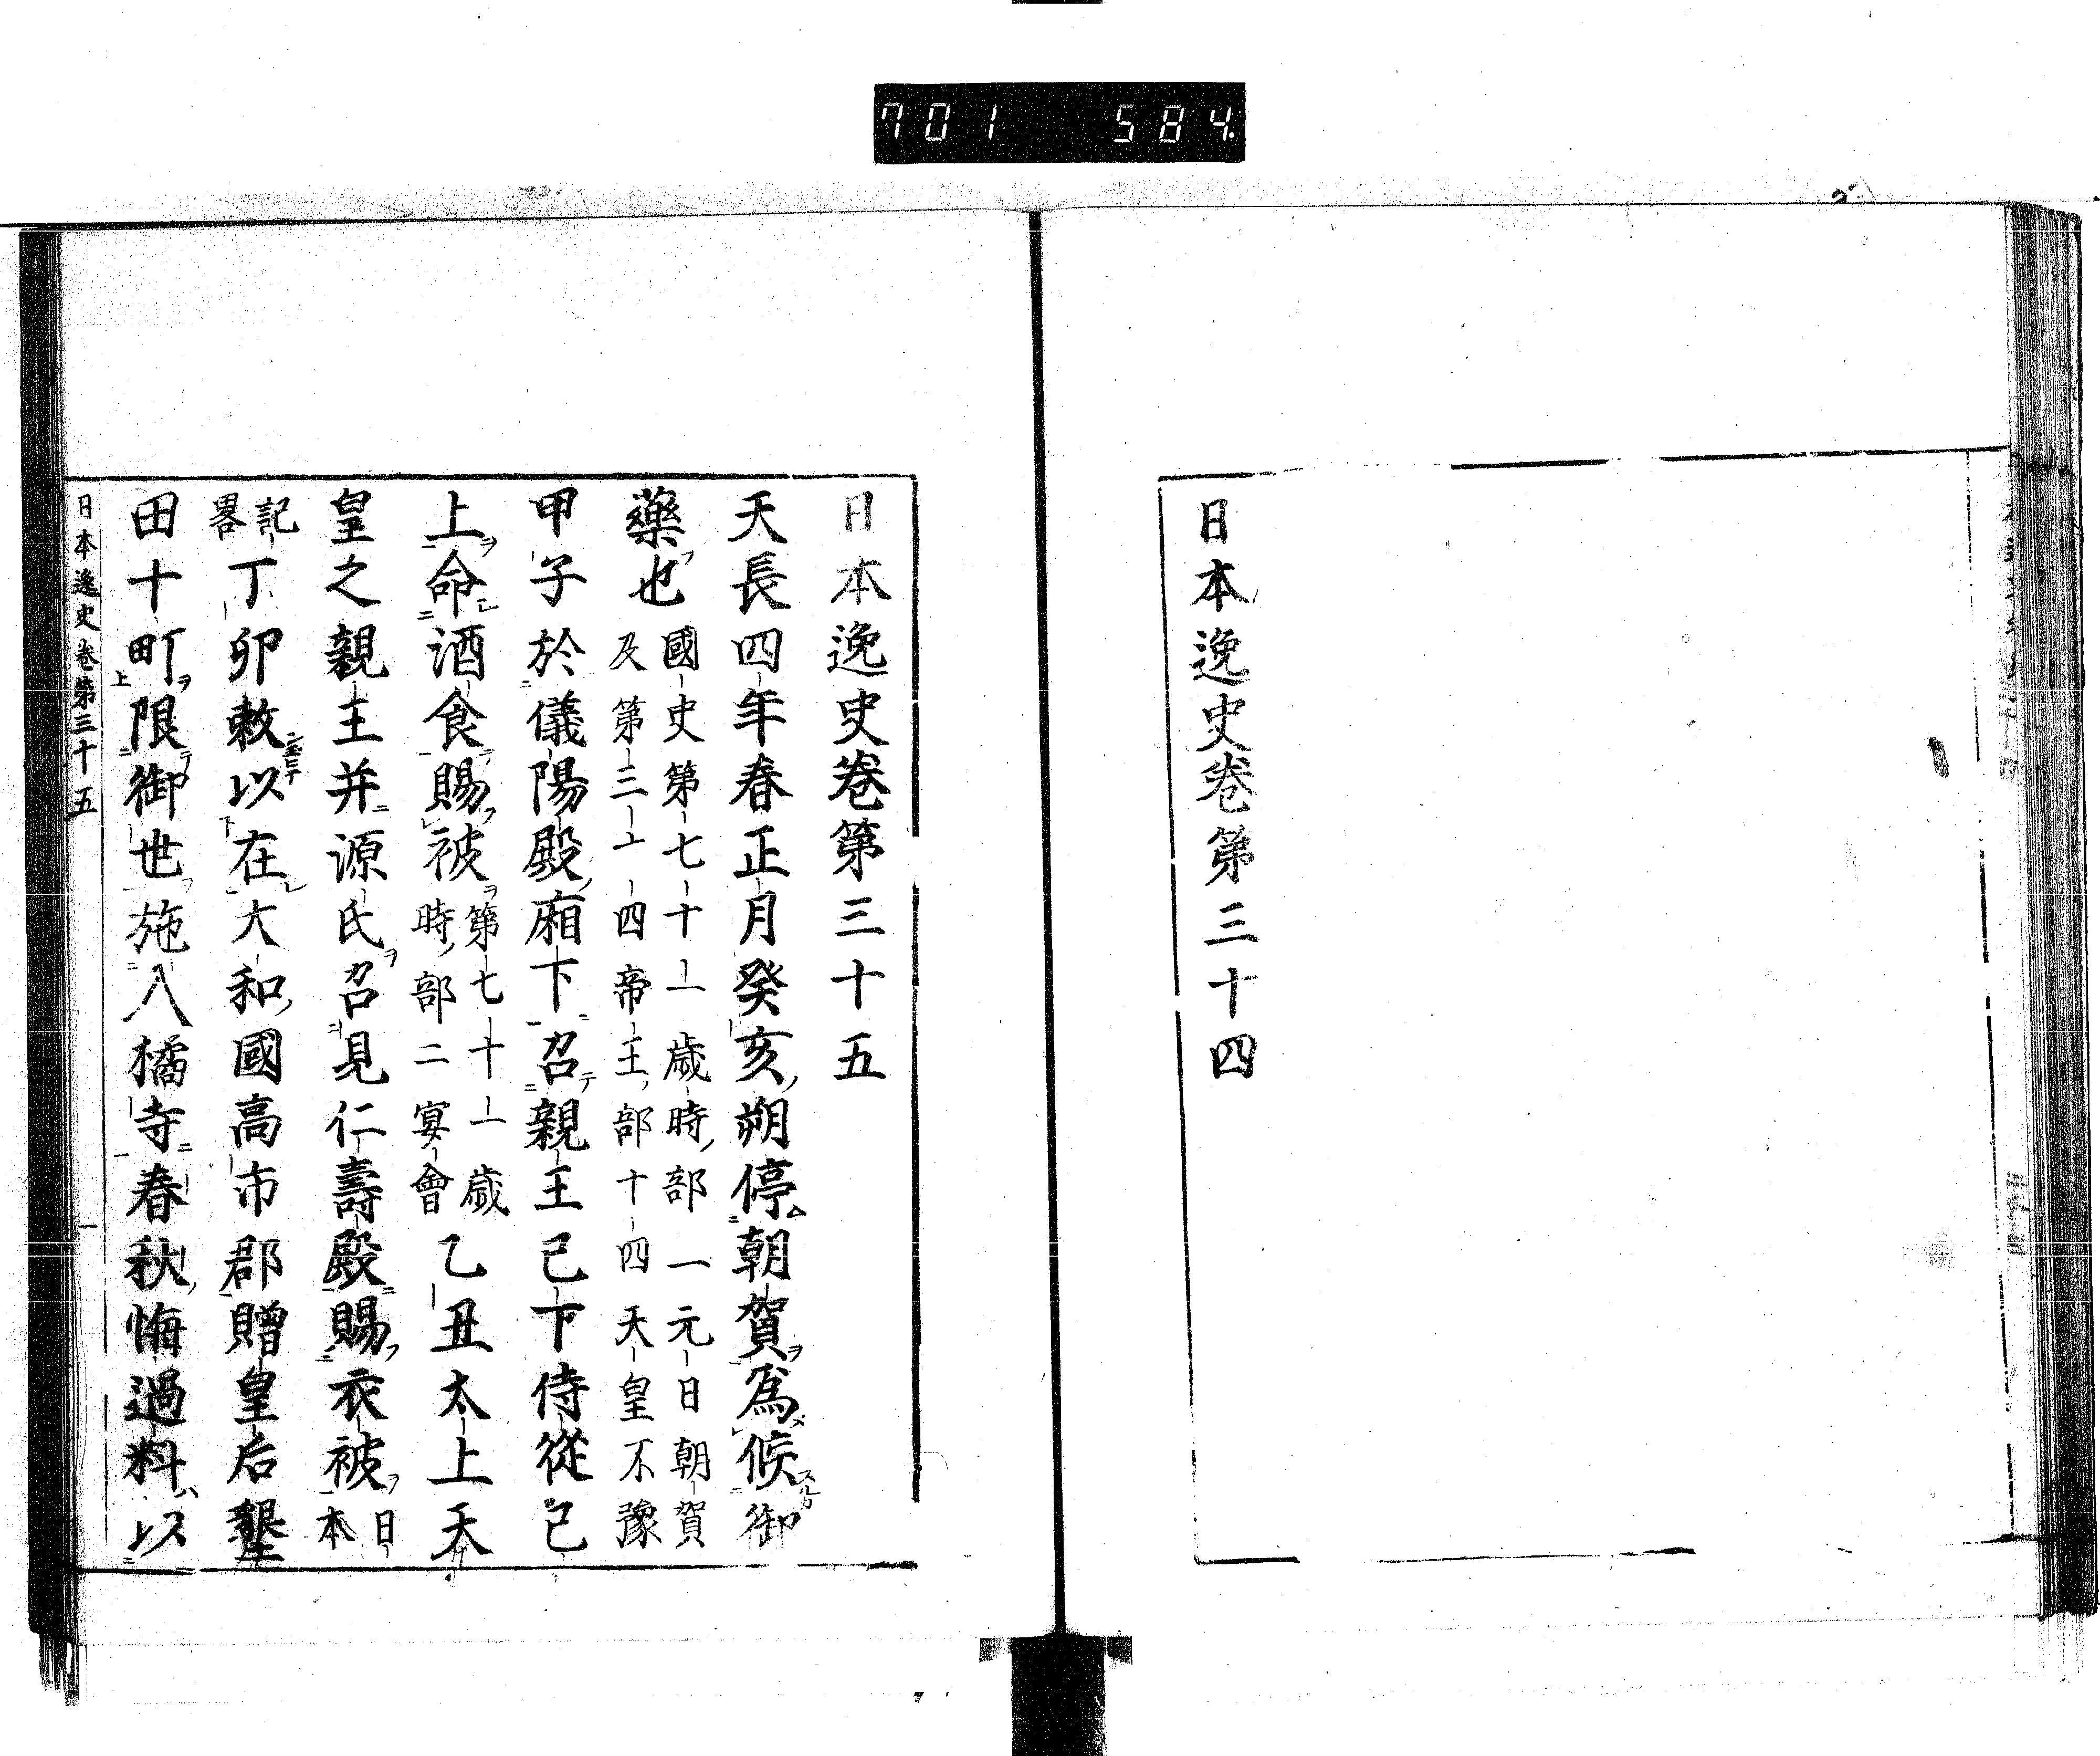 701 584
日本逸史卷第三十四
日本逸史卷第三十五
天長四年春正月癸亥朔停朝賀爲候御
藥也國史第七十一歳時部一元日朝賀
及第三十四帝王部十四天皇不豫
甲子於儀陽殿廂下召親王已下侍從已
上命酒食賜被第七十一歳
時部二宴會乙丑太上天
皇之親王并源氏召見仁壽殿賜衣被日
本
記
畧丁卯敕以在大和國高市郡贈皇后墾
田十町限御世施入橘寺春秋悔過料以
日本逸史卷第三十五 一